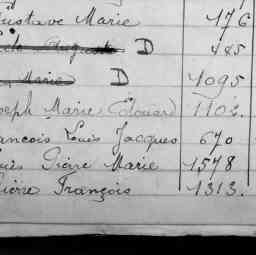 ustave Marie 476
Auguste D 485
Marie D 1095
oseph Marie Edouard 1102.
rancois Louis Jacques 670
ouis Pierre Marie 1578
ierre François 1313.